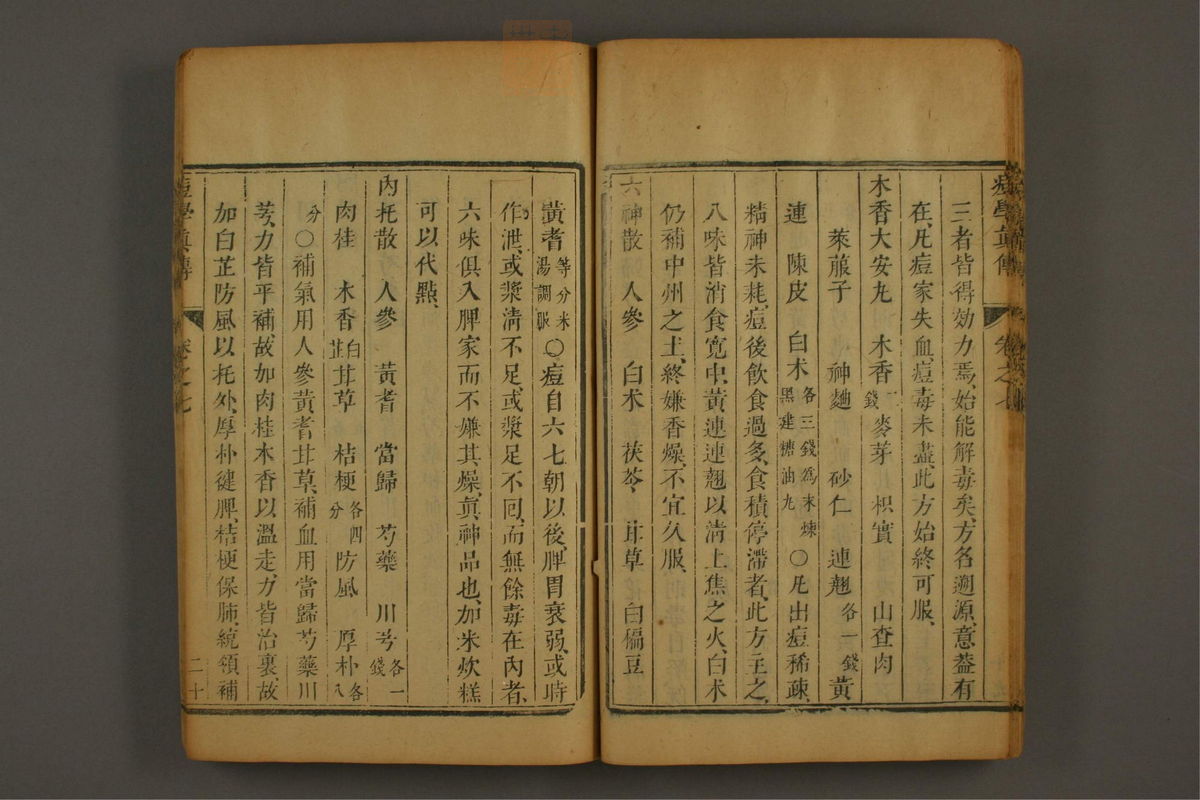 痘學眞傳 卷之七
三者皆得効力焉、始能解毒矣、方名遡源、意葢有
在、凡痘家失血、痘毒未盡、此方始終可服、
木香大安丸 木香一錢 麥芽 枳實 山查肉
萊菔子 神麯 砂仁 連翹各一錢 黃
連 陳皮 白术各三錢爲末煉黑建糖油丸 〇凡出痘稀疎、
精神未耗、痘後飲食過多、食積停滯者、此方主之、
八味皆消食寬中、黃連連翹以淸上焦之火、白术
仍補中州之土、終嫌香燥、不宜久服、
六神散 人參 白术 茯苓 甘草 白扁豆
黃耆等分米湯調服 〇痘自六七朝以後、脾胃衰弱、或時
作泄、或漿淸不足、或漿足不囘、而無餘毒在內者、
六味俱入脾家而不嫌其燥、眞神品也、加米炊糕
可以代點、
內托散 人參 黃耆 當歸 芍藥 川芎各一錢
肉桂 木香 白芷 甘草 桔梗各四分 防風 厚朴各八
分 〇補氣用人參黃耆甘草、補血用當歸芍藥川
芎、力皆平補、故加肉桂木香以溫走、力皆治裏、故
加白芷防風以托外、厚朴健脾、桔梗保肺、統領補
痘學眞傳 卷之七 二十